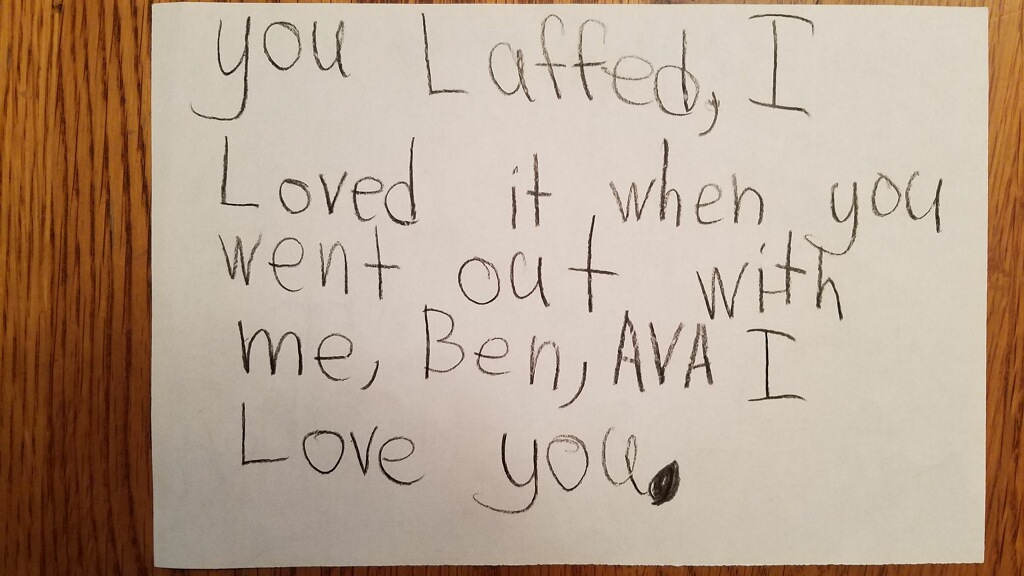 you Laffed, I
Loved it when you
went out with
me, Ben, AVA I
Love you.